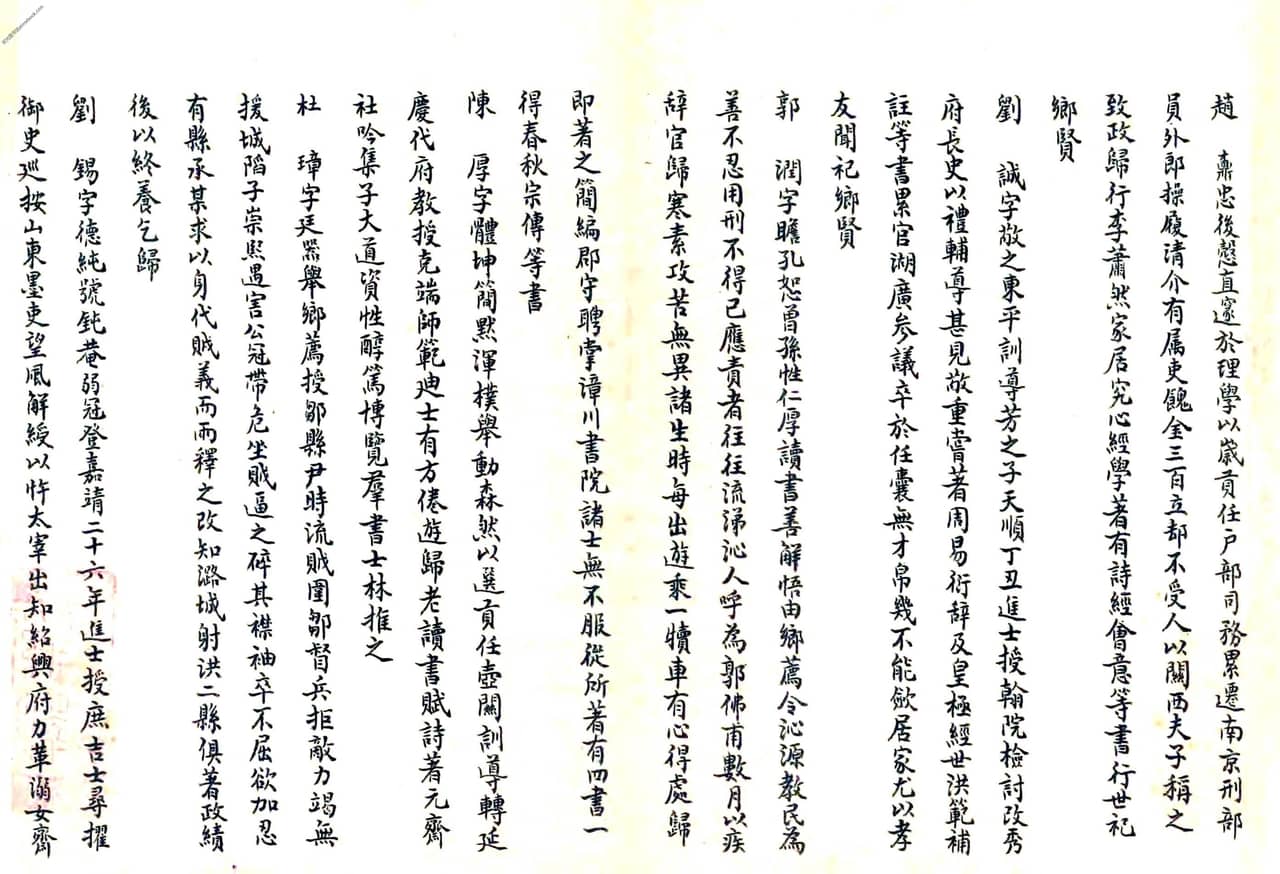 趙　鼐忠後慤直邃於理學以歲貢任户部司務累遷南京刑部
員外郎操履清介有属吏餽金三百立却不受人以關西夫子稱之
致政歸行李蕭然家居究心經學著有詩經會意等書行世祀
鄉賢
劉　誠字敬之東平訓導芳之子天順丁丑進士授翰院檢討改秀
府長史以禮輔導甚見敬重嘗著周易衍辞及皇極經世洪範補
註等書累官湖廣參議卒於任囊無才帛幾不能歛居家尤以孝
友聞祀鄉賢
郭　潤字瞻孔恕曾孫性仁厚讀書善解悟由鄉薦令沁源教民為
善不忍用刑不得已應責者往往流涕沁人呼為郭佛甫數月以疾
辞官歸寒素攻苦無異諸生時每出遊乘一犢車有心得處歸
即著之簡編郡守聘掌漳川書院諸士無不服從所著有四書一
得春秋宗傳等書
陳　厚字體坤簡默渾樸舉動森然以選貢任壺關訓導轉延
慶代府教授克端師範廸士有方倦遊歸老讀書賦詩著元齋
社吟集子大道資性醇篤博覽羣書士林推之
杜　璋字廷器舉鄉薦授鄒縣尹時流賊圍鄒督兵拒敵力竭無
援城陷子崇熙遇害公冠帶危坐賊逼之碎其襟袖卒不屈欲加忍
有縣丞某求以身代賊義而兩釋之改知潞城射洪二縣俱著政績
後以終養乞歸
劉　錫字德純號鈍菴弱冠登嘉靖二十六年進士授庶吉士尋擢
御史廵按山東墨吏望風解綬以忤太宰出知紹興府力革溺女齊